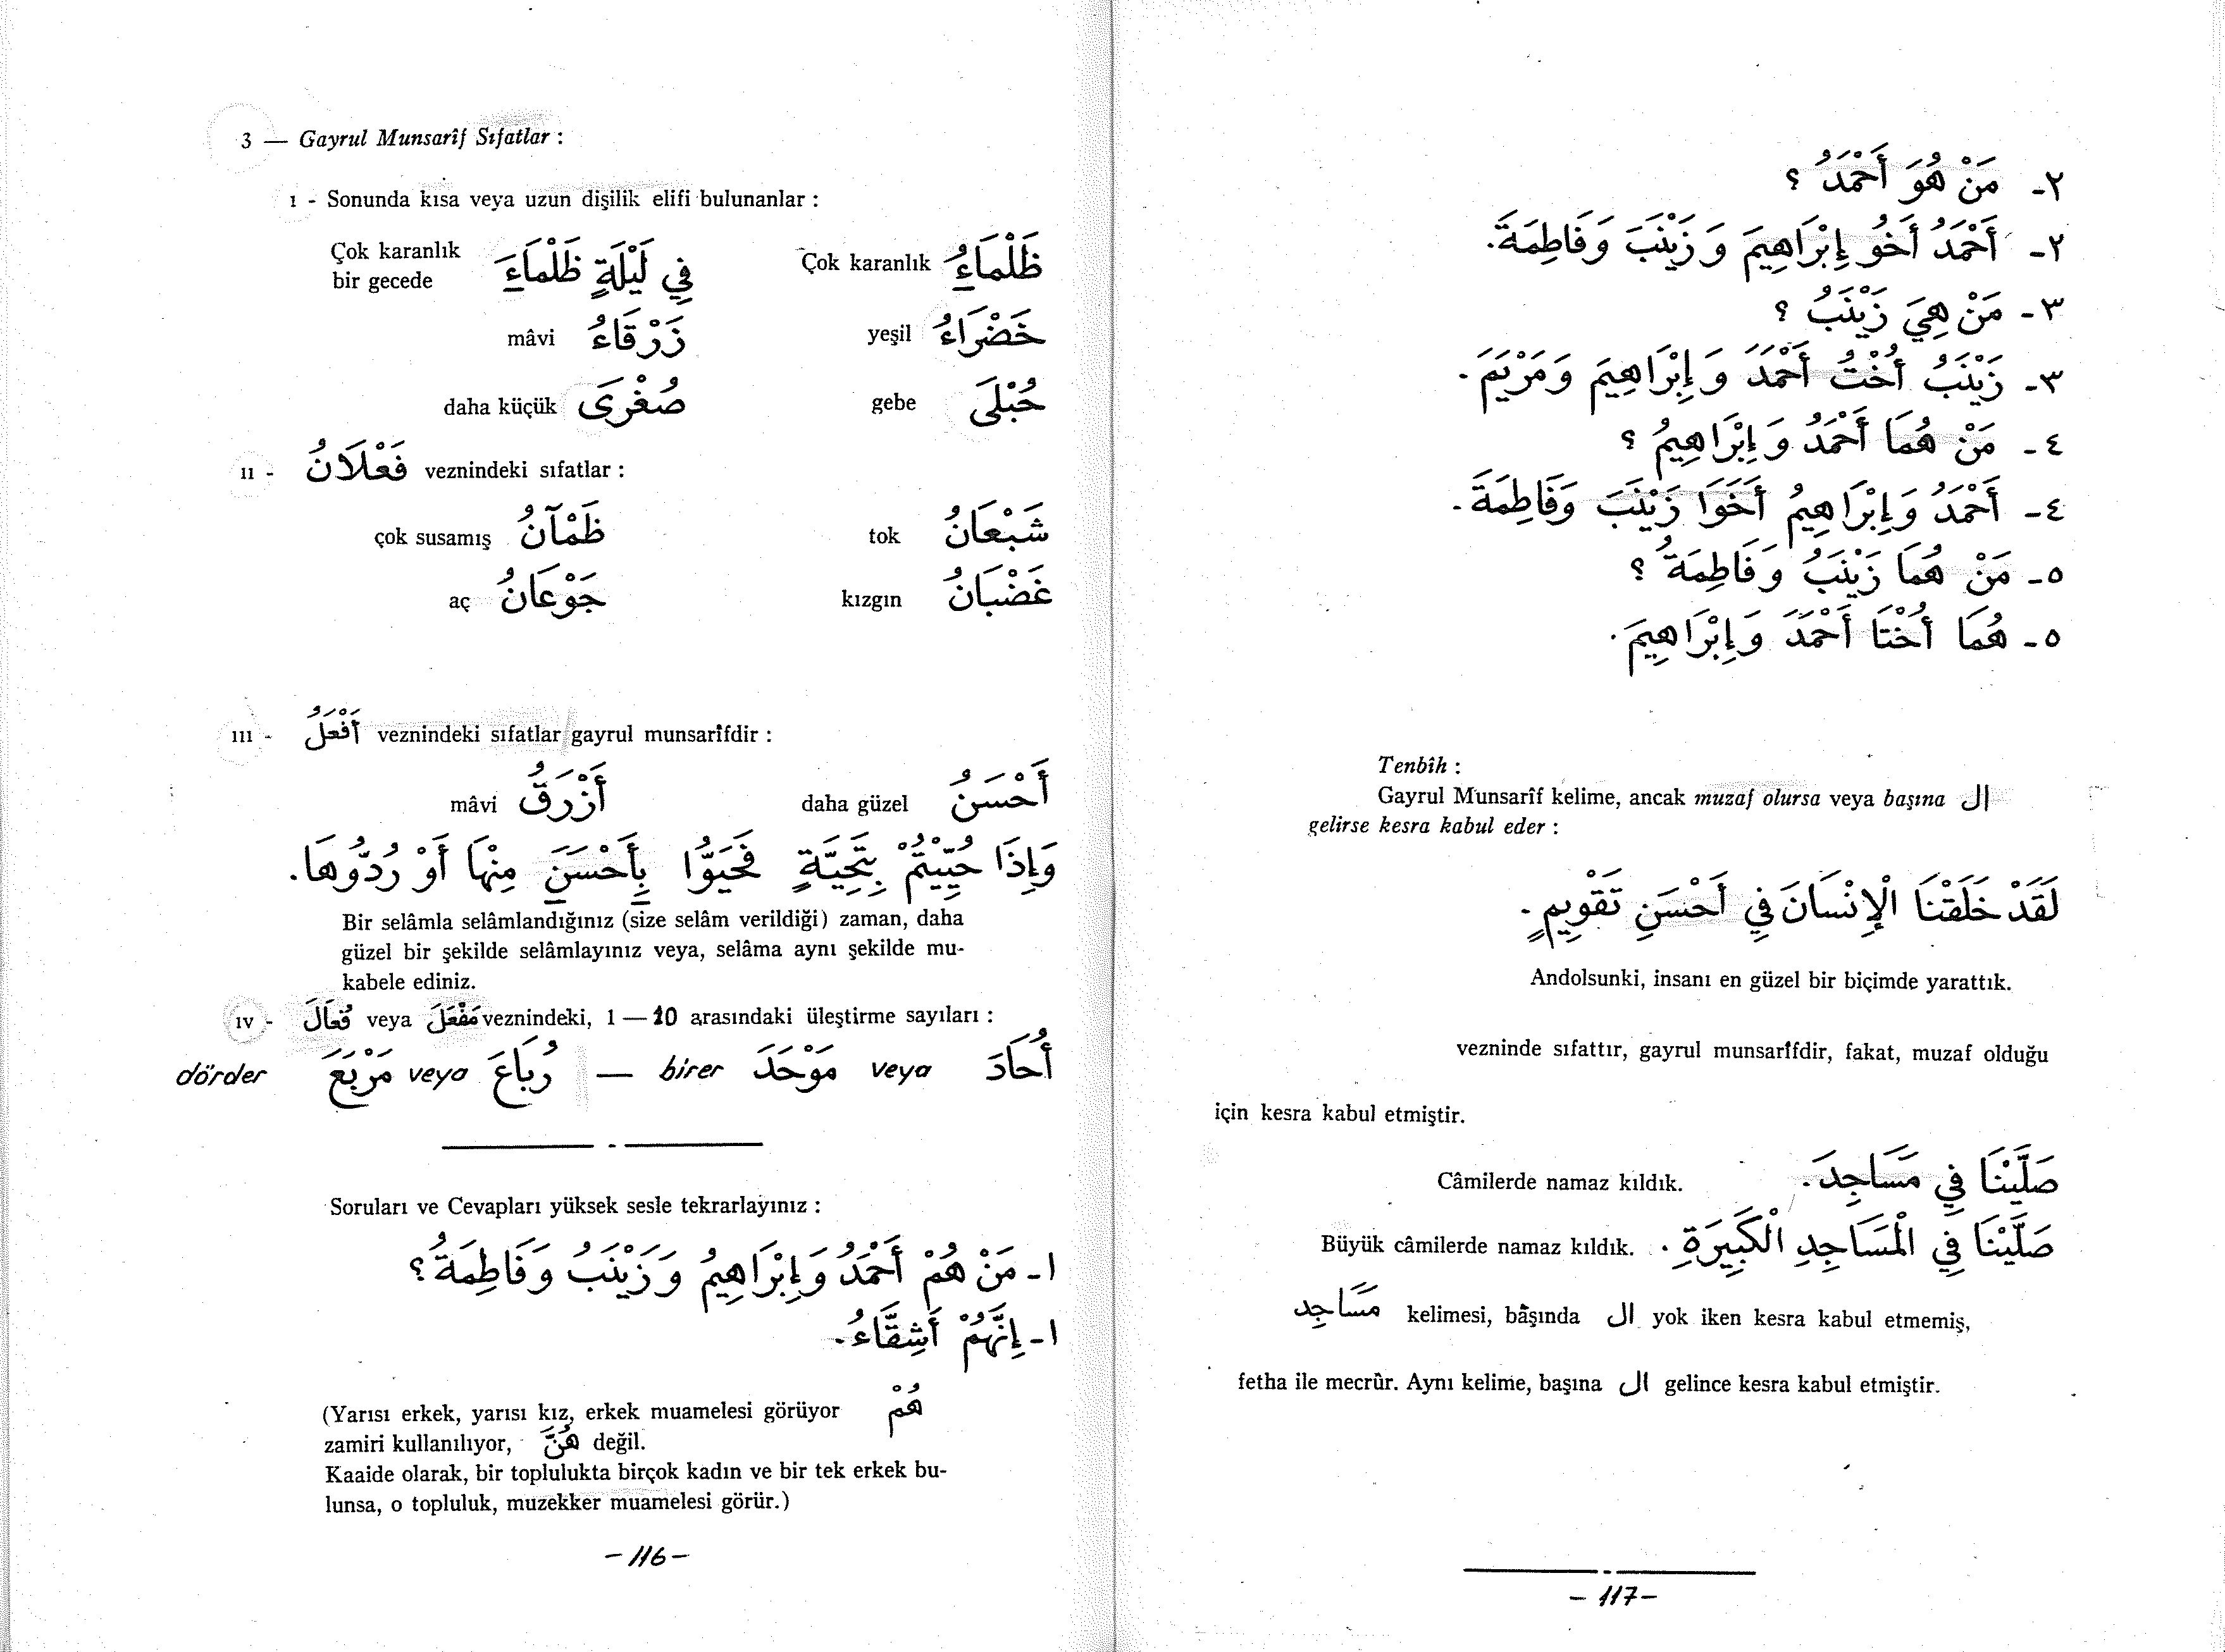 3 — Gayrul Munsarîf Sıfatlar :
ı - Sonunda kısa veya uzun dişilik elifi bulunanlar :
ظَلْمَاءُ Çok karanlık فِي لَيْلَةٍ ظَلْمَاءَ Çok karanlık
bir gecede
خَضْرَاءُ yeşil زَرْقَاءُ mâvi
حُبْلَى gebe صُغْرَى daha küçük
ıı - فَعْلَانُ veznindeki sıfatlar :
شَبْعَانُ tok ظَمْآنُ çok susamış
غَضْبَانُ kızgın جَوْعَانُ aç
ııı - أَفْعَلُ veznindeki sıfatlar gayrul munsarîfdir :
أَحْسَنُ daha güzel أَزْرَقُ mâvi
وَإِذَا حُيِّيتُمْ بِتَحِيَّةٍ فَحَيُّوا بِأَحْسَنَ مِنْهَا أَوْ رُدُّوهَا.
Bir selâmla selâmlandığınız (size selâm verildiği) zaman, daha
güzel bir şekilde selâmlayınız veya, selâma aynı şekilde mu-
kabele ediniz.
ıv - فُعَالَ veya مَفْعَلَ veznindeki, 1 — 10 arasındaki üleştirme sayıları :
أُحَادَ veya مَوْحَدَ birer — رُبَاعَ veya مَرْبَعَ dörder
Soruları ve Cevapları yüksek sesle tekrarlayınız :
١- مَنْ هُمْ أَحْمَدُ وَإِبْرَاهِيمُ وَزَيْنَبُ وَفَاطِمَةُ؟
١- إِنَّهُمْ أَشِقَّاءُ.
(Yarısı erkek, yarısı kız, erkek muamelesi görüyor هُمْ
zamiri kullanılıyor, هُنَّ değil.
Kaaide olarak, bir toplulukta birçok kadın ve bir tek erkek bu-
lunsa, o topluluk, muzekker muamelesi görür.)
- 116 -
٢- مَنْ هُوَ أَحْمَدُ ؟
٢- أَحْمَدُ أَخُو إِبْرَاهِيمَ وَزَيْنَبَ وَفَاطِمَةَ.
٣- مَنْ هِيَ زَيْنَبُ ؟
٣- زَيْنَبُ أُخْتُ أَحْمَدَ وَإِبْرَاهِيمَ وَمَرْيَمَ.
٤- مَنْ هُمَا أَحْمَدُ وَإِبْرَاهِيمُ ؟
٤- أَحْمَدُ وَإِبْرَاهِيمُ أَخَوَا زَيْنَبَ وَفَاطِمَةَ.
٥- مَنْ هُمَا زَيْنَبُ وَفَاطِمَةُ ؟
٥- هُمَا أُخْتَا أَحْمَدَ وَإِبْرَاهِيمَ.
Tenbîh :
Gayrul Munsarîf kelime, ancak muzaf olursa veya başına ال
gelirse kesra kabul eder :
لَقَدْ خَلَقْنَا الْإِنْسَانَ فِي أَحْسَنِ تَقْوِيمٍ.
Andolsunki, insanı en güzel bir biçimde yarattık.
vezninde sıfattır, gayrul munsarîfdir, fakat, muzaf olduğu
için kesra kabul etmiştir.
صَلَّيْنَا فِي مَسَاجِدَ. Câmilerde namaz kıldık.
صَلَّيْنَا فِي الْمَسَاجِدِ الْكَبِيرَةِ. Büyük câmilerde namaz kıldık.
مَسَاجِد kelimesi, başında ال yok iken kesra kabul etmemiş,
fetha ile mecrûr. Aynı kelime, başına ال gelince kesra kabul etmiştir.
- 117 -